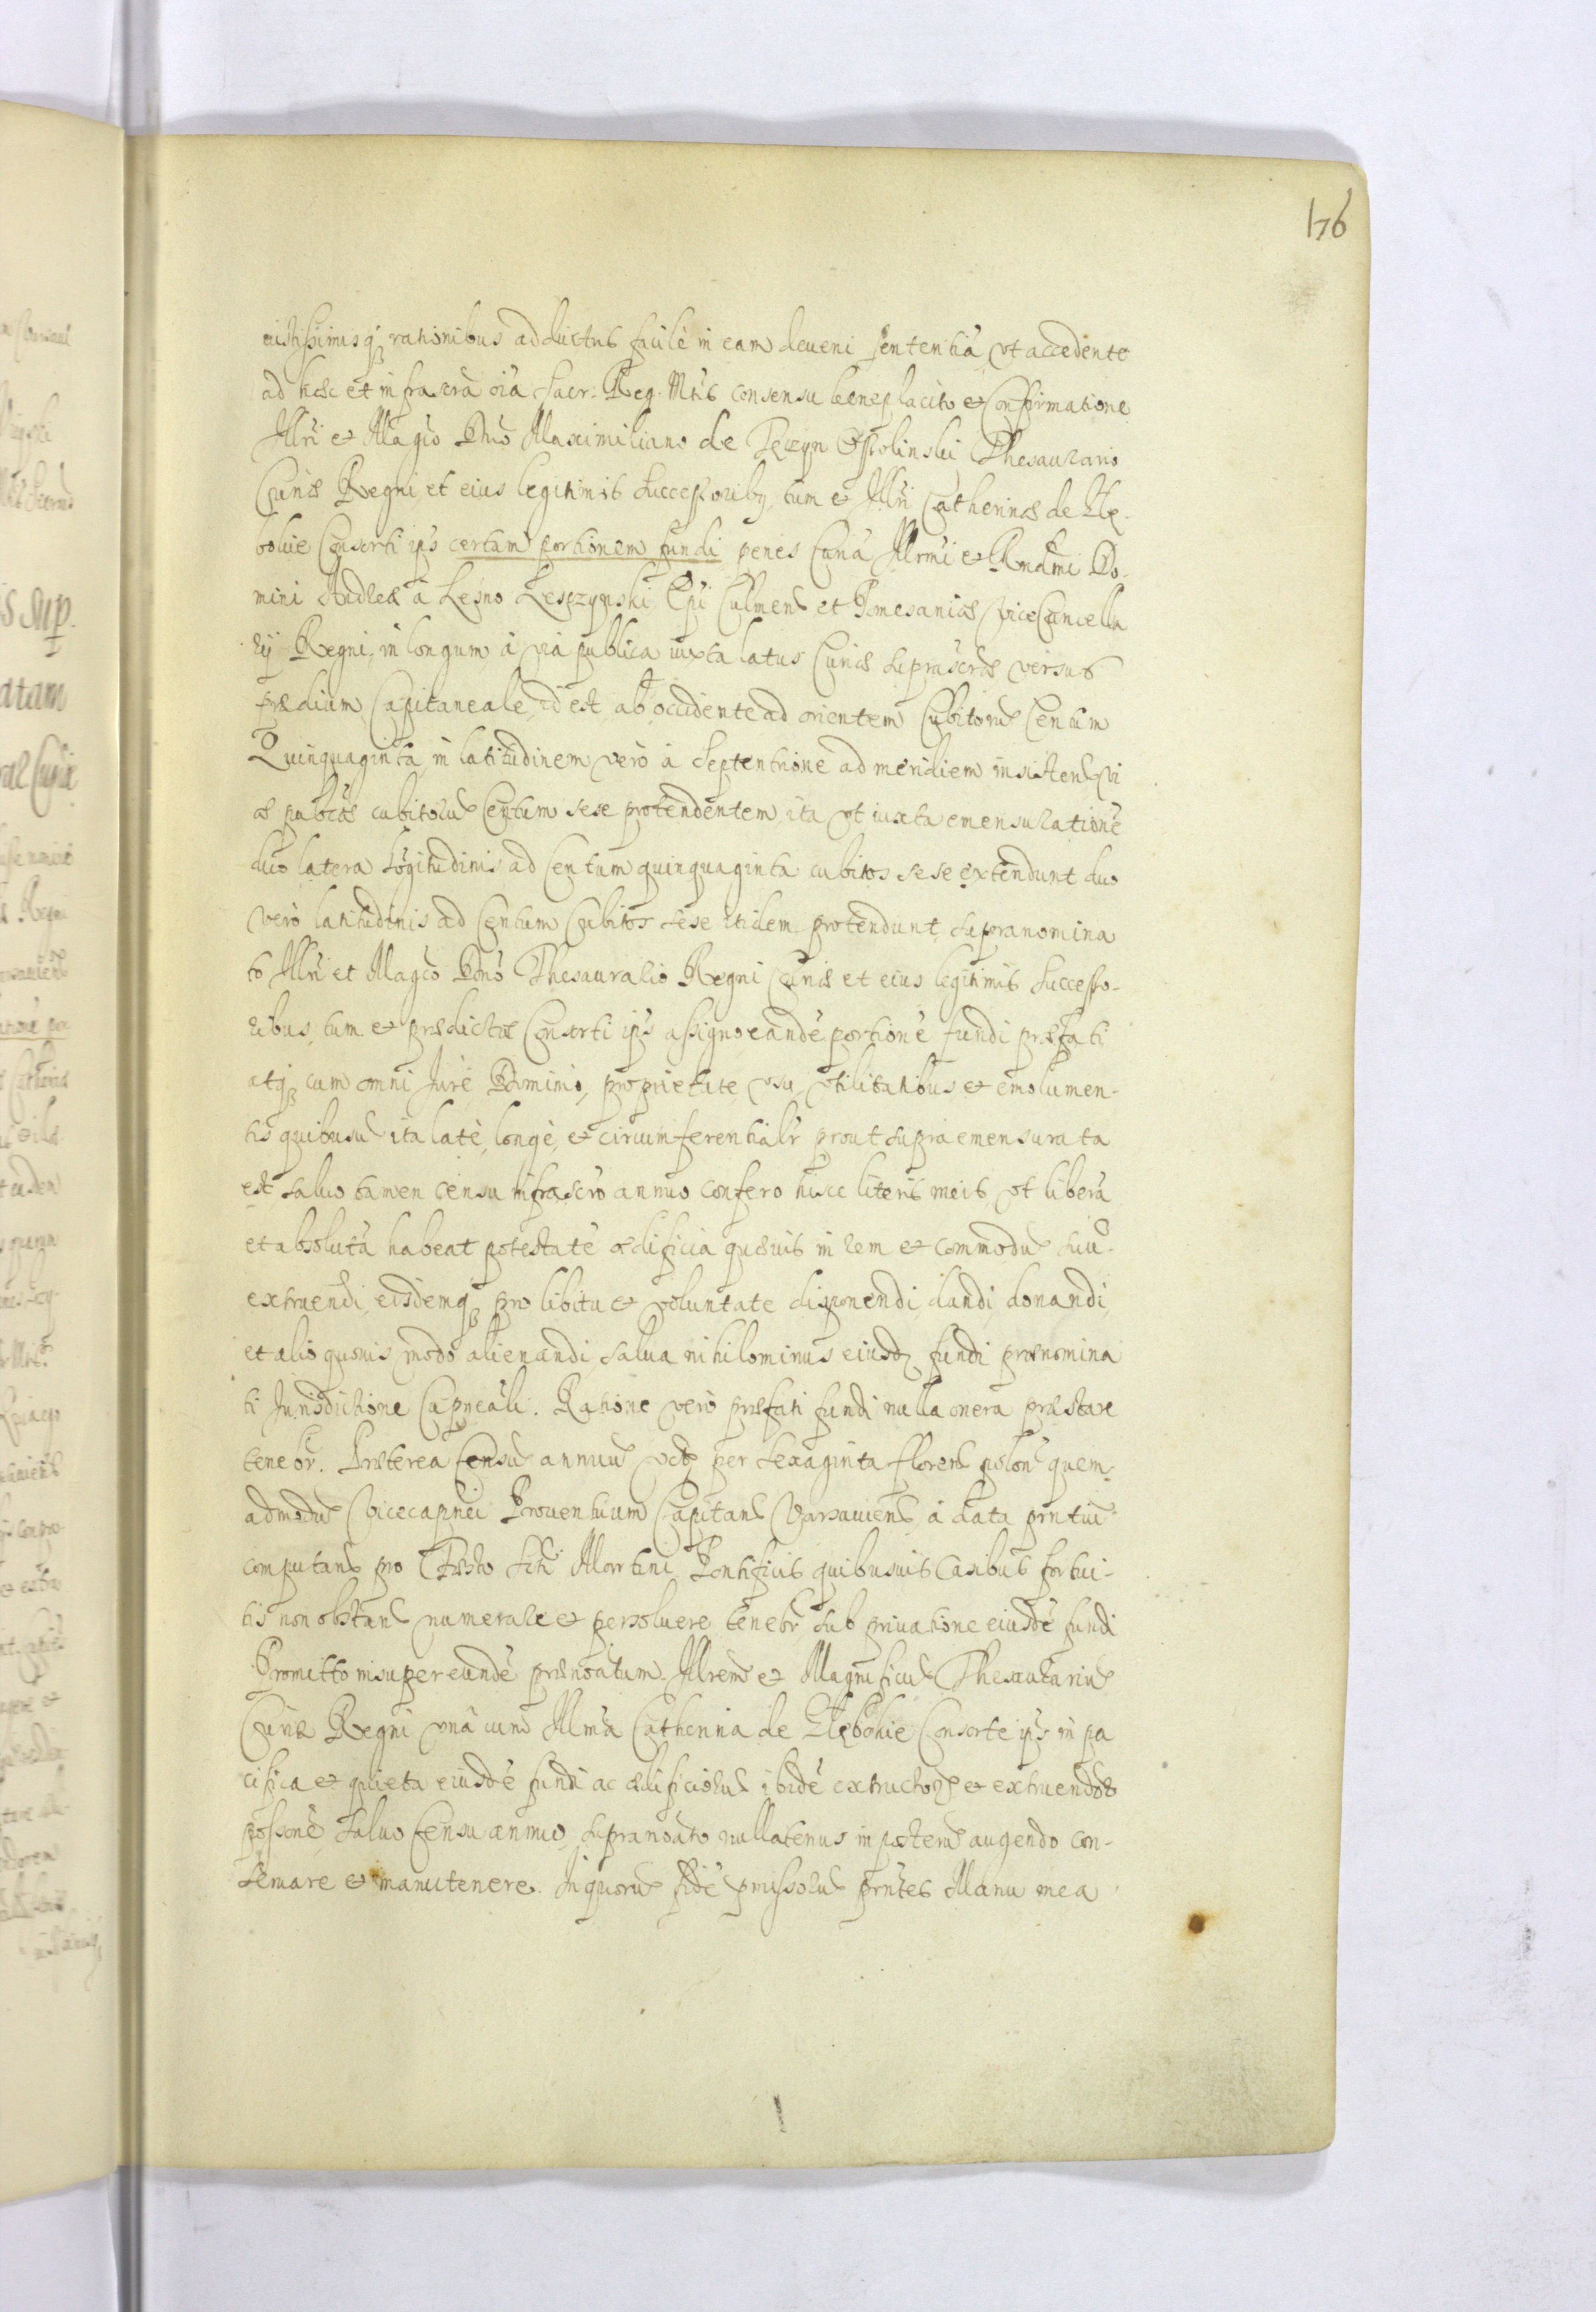 176
iustissimisq; rationibus adductus facilè in eam deueni sententiã, vt accedente
ad hæc et infrascrã oĩa Sacr: Reg: Mtis consensu beneplacito et confirmatione
Illri et Magco Dno Maximiliano de Tęczyn Ossolinski Thesaurario
Curiæ Regni, et eius legitimis Successoribq, tum et Illri Catherinæ de
Consorti ips certam portionem fundi penes Curiã Illrmi et Rndmi Do-
mini Andreæ à Lesno Leszczynski Epi Culmens et Pomesaniæ ViceCancella
rij Regni, in longum à via publica iuxta latus Curiæ suprascræ versus
prædium Capitaneale, id est, ab occidente ad orientem Cubitorũ Centum
Quinquaginta, in latitudinem verò à Septentrione ad meridiem insistens vi
æ publcæ cubitorũ Centum sese protendentem, ita vt iuxta emensurationẽ
duo latera lõgitudinis ad Centum quinquaginta cubitos sese extendunt duo
verò latitudinis ad Centum Cubitos sese itidem protendunt, supranomina
to Illri et Magco Dno Thesaurario Regni Curiæ et eius legitimis Successo-
ribus, tum et prædictæ Consorti ips assigno eandẽ portionẽ fundi præfati
atq; cum omni Jure Dominio, proprietate, vsu, vtilitatibus et emolumen-
tis quibusũ ita latè, longè, et circumferentialr prout supra emensurata
est saluo tamen censu infrascro annuo confero hisce literis meis, vt liberã
et absolutã habeat potestatẽ ædificia quæuis in rem et commodũ suũ
extruendi, eisdemq; pro libitu et voluntate disponendi, dandi, donandi,
et alio quouis modo alienandi, salua nihilominus eiusd fundi prænomina
ti Jurisdictione Capneali. Ratione verò præfati fundi nulla onera præstare
tenebr. Præterea Censũ annuũ vcz per sexaginta florens polon quem-
admodũ Vicecapnei Prouentuum Capitans Varsauiens, à data prntiũ
computans pro Festo Scti Martini Pontificis quibusuis Casibus fortui-
tis non obstans numerare et persoluere tenebr sub priuatione eiusdẽ fundi
Promitto insuper eundẽ prænoatum Illrem et Magnificũ Thesaurariũ
Curiæ Regni vnà cum Illma Catherina de Consorte ips in pa
cifica et quieta eiusdẽ fundi ac ædificiorũ ibidẽ extructor et extruendor
possonẽ saluo Censu annuo supranoato nullatenus in posterũ augendo con-
seruare et manutenere. In quorũ fidẽ pmissorũ prntes Manu mea